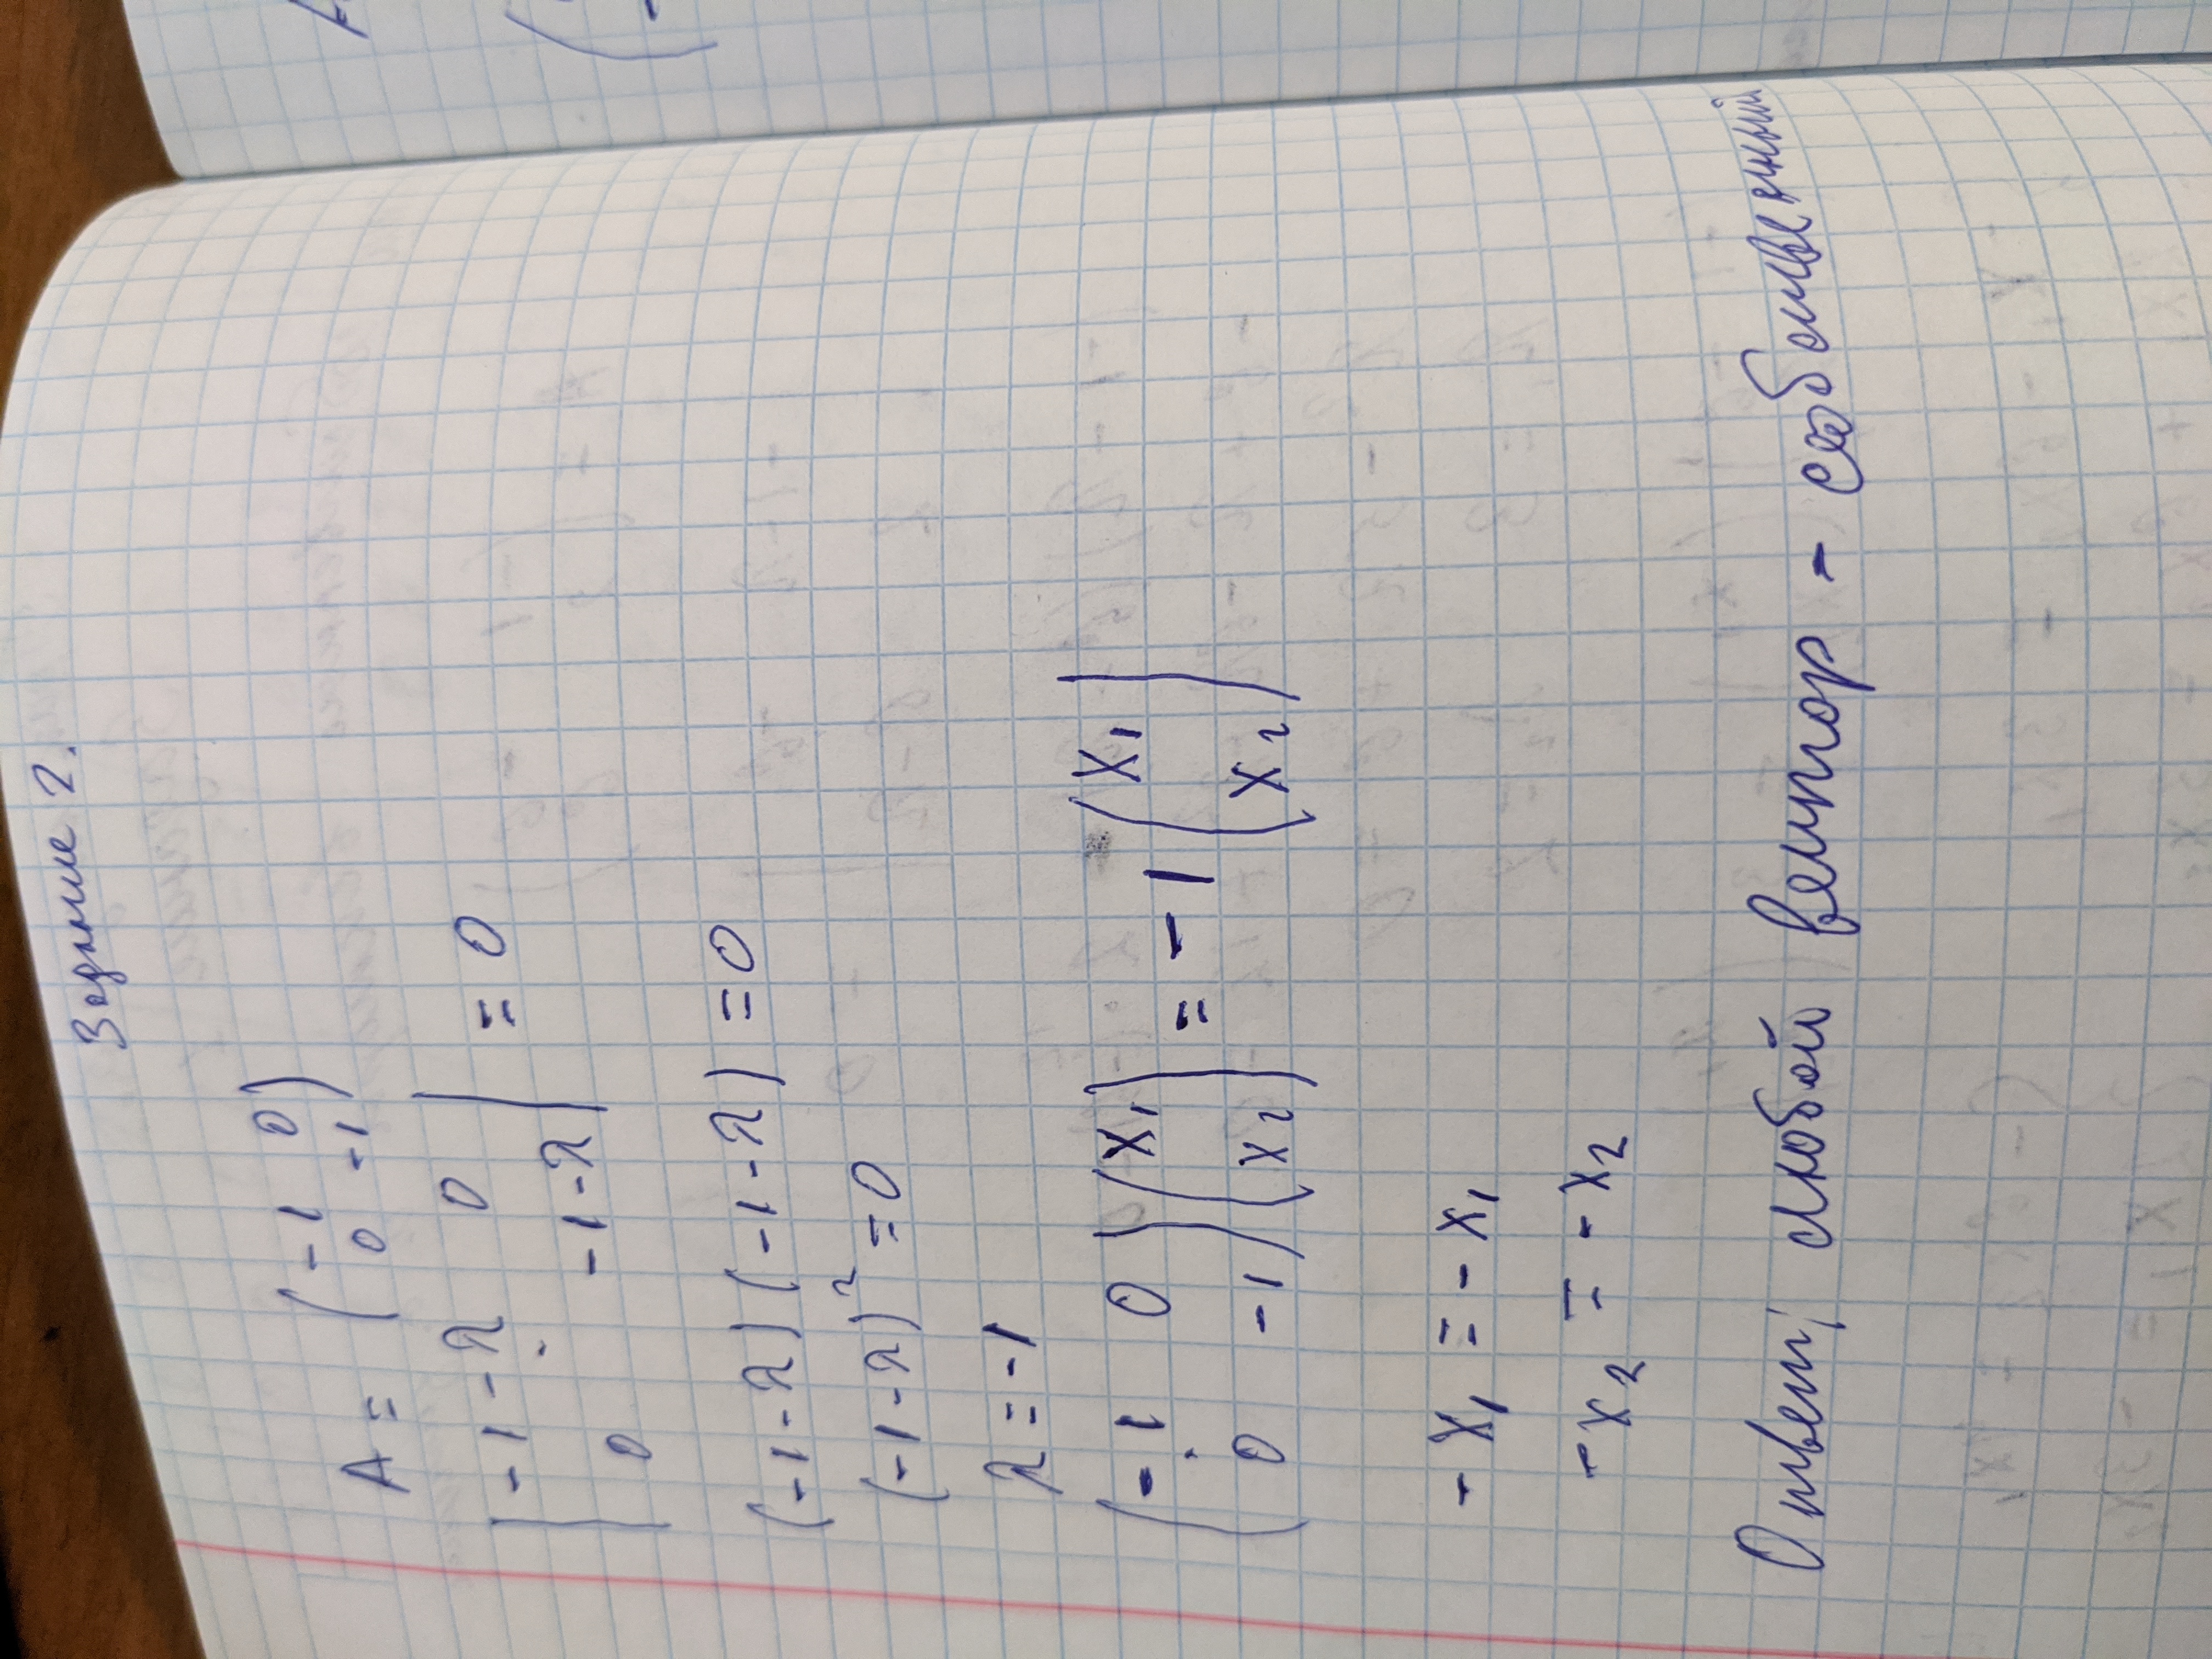 Задание 2.
A = (-1 0
0 -1)
|-1-λ 0
0 -1-λ| = 0
(-1-λ)(-1-λ) = 0
(-1-λ)² = 0
λ = -1
(-1 0
0 -1)(x₁
x₂) = -1(x₁
x₂)
-x₁ = -x₁
-x₂ = -x₂
Ответ: любой вектор - собственный